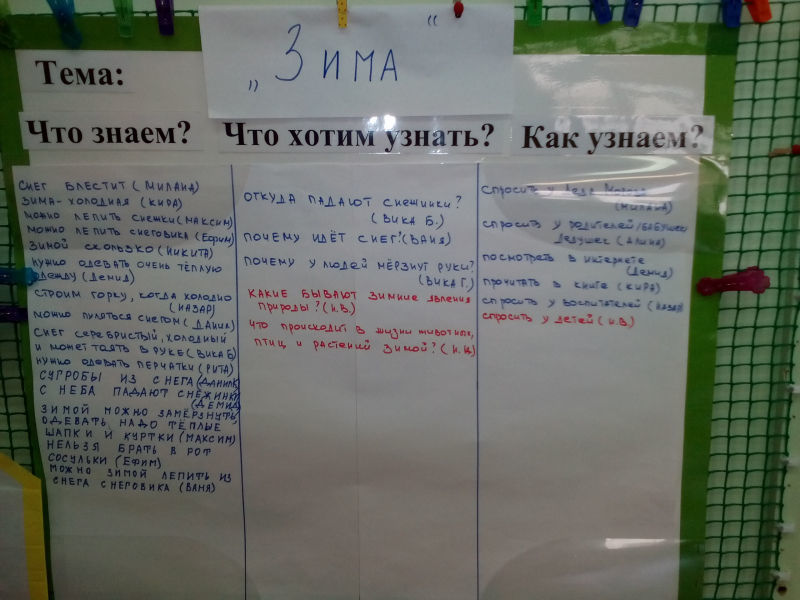 Тема:
„Зима“
Что знаем?
Что хотим узнать?
Как узнаем?
СНЕГ БЛЕСТИТ (МИЛАНА)
ЗИМА - ХОЛОДНАЯ (КИРА)
МОЖНО ЛЕПИТЬ СНЕЖКИ (МАКСИМ)
МОЖНО ЛЕПИТЬ СНЕГОВИКА (ЕФИМ)
ЗИМОЙ СКОЛЬЗКО (НИКИТА)
НУЖНО ОДЕВАТЬ ОЧЕНЬ ТЁПЛУЮ
ОДЕЖДУ (ДЕМИД)
СТРОИМ ГОРКУ, КОГДА ХОЛОДНО
(НАЗАР)
МОЖНО ПУЛЯТЬСЯ СНЕГОМ (ДАНИЛ)
СНЕГ СЕРЕБРИСТЫЙ, ХОЛОДНЫЙ
И МОЖЕТ ТАЯТЬ В РУКЕ (ВИКА Б)
НУЖНО ОДЕВАТЬ ПЕРЧАТКИ (РИТА)
СУГРОБЫ ИЗ СНЕГА (ДАНИЛ)
С НЕБА ПАДАЮТ СНЕЖИНКИ
(ДЕМИД)
ЗИМОЙ МОЖНО ЗАМЁРЗНУТЬ,
ОДЕВАТЬ НАДО ТЁПЛЫЕ
ШАПКИ И КУРТКИ (МАКСИМ)
НЕЛЬЗЯ БРАТЬ В РОТ
СОСУЛЬКИ (ЕФИМ)
МОЖНО ЗИМОЙ ЛЕПИТЬ ИЗ
СНЕГА СНЕГОВИКА (ВАНЯ)
ОТКУДА ПАДАЮТ СНЕЖИНКИ?
(ВИКА Б.)
ПОЧЕМУ ИДЁТ СНЕГ? (ВАНЯ)
ПОЧЕМУ У ЛЮДЕЙ МЁРЗНУТ РУКИ?
(ВИКА Г.)
КАКИЕ БЫВАЮТ ЗИМНИЕ ЯВЛЕНИЯ
ПРИРОДЫ? (И.В.)
ЧТО ПРОИСХОДИТ В ЖИЗНИ ЖИВОТНЫХ,
ПТИЦ И РАСТЕНИЙ ЗИМОЙ? (И.В.)
СПРОСИТЬ У ДЕДА МОРОЗА
(МИЛАНА)
СПРОСИТЬ У РОДИТЕЛЕЙ/БАБУШЕК
ДЕДУШЕК (АЛИНА)
ПОСМОТРЕТЬ В ИНТЕРНЕТЕ
(ДЕМИД)
ПРОЧИТАТЬ В КНИГЕ (КИРА)
СПРОСИТЬ У ВОСПИТАТЕЛЕЙ (НАЗАР)
СПРОСИТЬ У ДЕТЕЙ (И.В.)